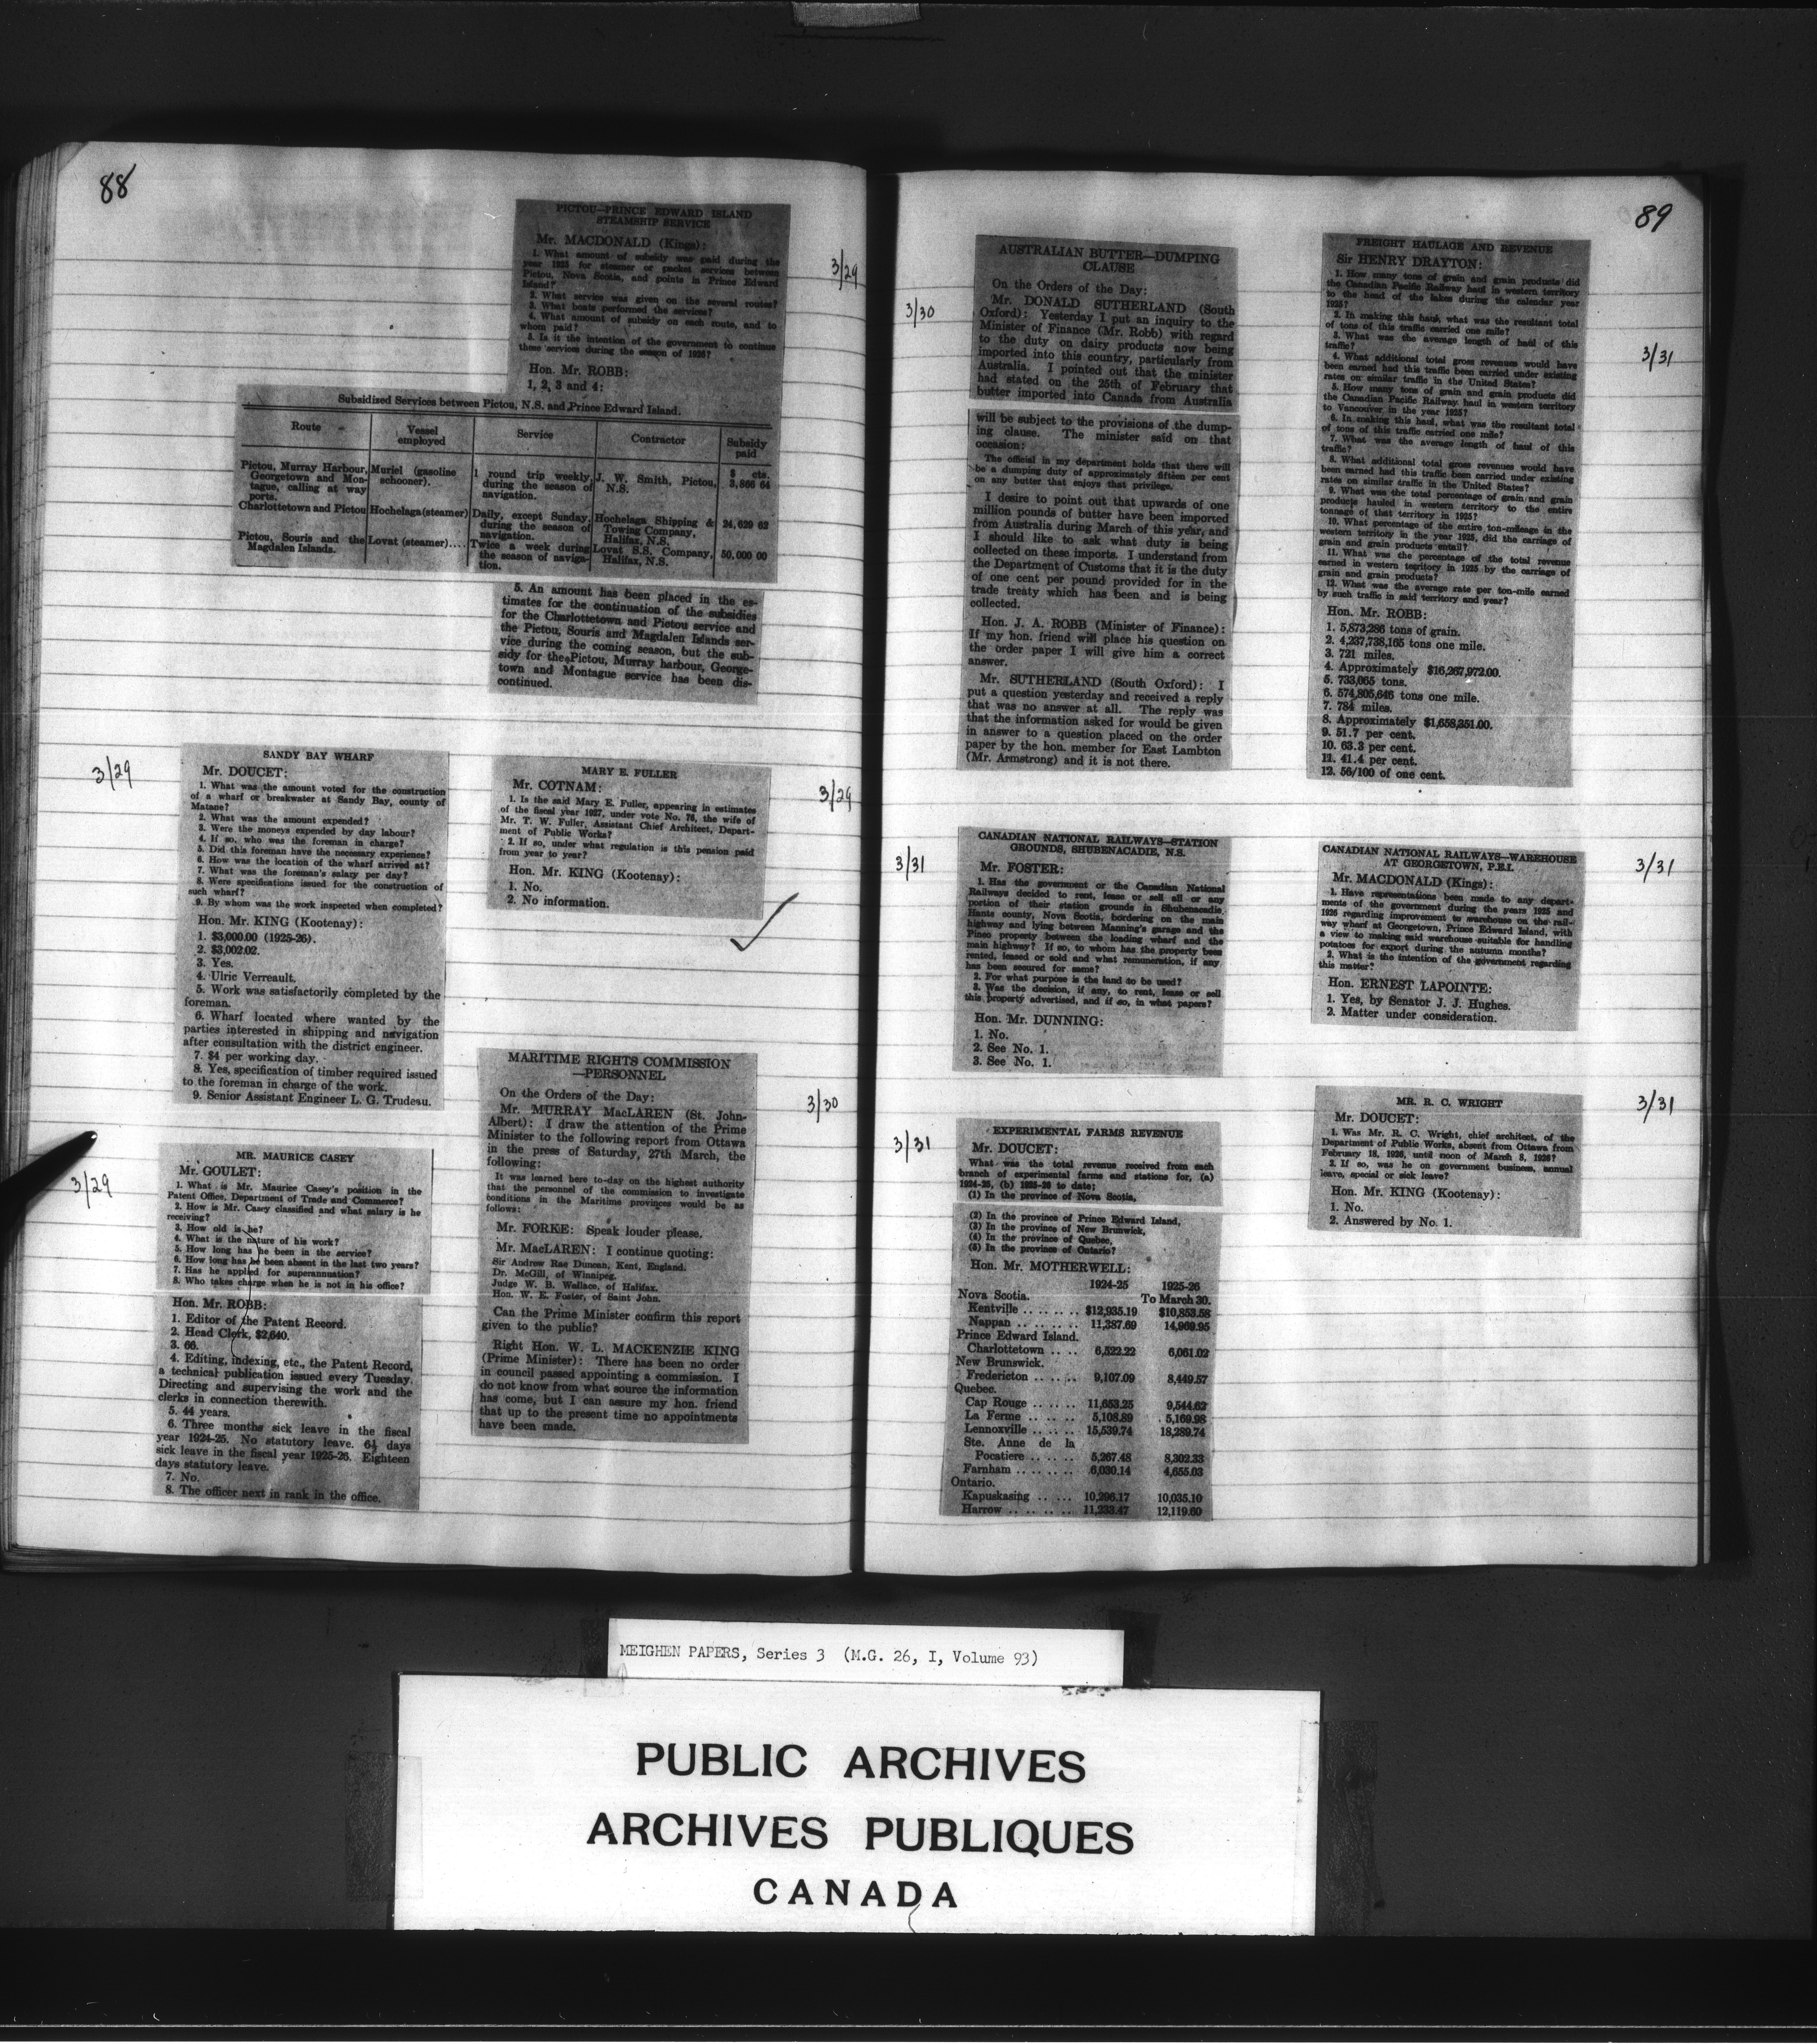 88
PICTOU—PRINCE EDWARD ISLAND
STEAMSHIP SERVICE
3/29
Mr. MACDONALD (Kings):
1. What amount of subsidy was paid during the
year 1925 for steamer or packet services between
Pictou, Nova Scotia, and points in Prince Edward
Island?
2. What service was given on the several routes?
3. What boats performed the services?
4. What amount of subsidy on each route, and to
whom paid?
5. Is it the intention of the government to continue
these services during the season of 1926?
Hon. Mr. ROBB:
1, 2, 3 and 4:
Subsidized Services between Pictou, N.S. and Prince Edward Island.
Route Vessel employed Service Contractor Subsidy paid
$ cts.
Pictou, Murray Harbour, Georgetown and Montague, calling at way ports. Muriel (gasoline schooner). 1 round trip weekly, during the season of navigation. J. W. Smith, Pictou, N.S. 3,866 64
Charlottetown and Pictou Hochelaga (steamer) Daily, except Sunday, during the season of navigation. Hochelaga Shipping & Towing Company, Halifax, N.S. 24,629 62
Pictou, Souris and the Magdalen Islands. Lovat (steamer).... Twice a week during the season of navigation. Lovat S.S. Company, Halifax, N.S. 50,000 00
5. An amount has been placed in the es-
timates for the continuation of the subsidies
for the Charlottetown and Pictou service and
the Pictou, Souris and Magdalen Islands ser-
vice during the coming season, but the sub-
sidy for the Pictou, Murray harbour, George-
town and Montague service has been dis-
continued.
3/29
SANDY BAY WHARF
Mr. DOUCET:
1. What was the amount voted for the construction
of a wharf or breakwater at Sandy Bay, county of
Matane?
2. What was the amount expended?
3. Were the moneys expended by day labour?
4. If so, who was the foreman in charge?
5. Did this foreman have the necessary experience?
6. How was the location of the wharf arrived at?
7. What was the foreman's salary per day?
8. Were specifications issued for the construction of
such wharf?
9. By whom was the work inspected when completed?
Hon. Mr. KING (Kootenay):
1. $3,000.00 (1925-26).
2. $3,002.02.
3. Yes.
4. Ulric Verreault.
5. Work was satisfactorily completed by the
foreman.
6. Wharf located where wanted by the
parties interested in shipping and navigation
after consultation with the district engineer.
7. $4 per working day.
8. Yes, specification of timber required issued
to the foreman in charge of the work.
9. Senior Assistant Engineer L. G. Trudeau.
3/29
MR. MAURICE CASEY
Mr. GOULET:
1. What is Mr. Maurice Casey's position in the
Patent Office, Department of Trade and Commerce?
2. How is Mr. Casey classified and what salary is he
receiving?
3. How old is he?
4. What is the nature of his work?
5. How long has he been in the service?
6. How long has he been absent in the last two years?
7. Has he applied for superannuation?
8. Who takes charge when he is not in his office?
Hon. Mr. ROBB:
1. Editor of the Patent Record.
2. Head Clerk, $2,640.
3. 66.
4. Editing, indexing, etc., the Patent Record,
a technical publication issued every Tuesday.
Directing and supervising the work and the
clerks in connection therewith.
5. 44 years.
6. Three months sick leave in the fiscal
year 1924-25. No statutory leave. 6½ days
sick leave in the fiscal year 1925-26. Eighteen
days statutory leave.
7. No.
8. The officer next in rank in the office.
MARY E. FULLER
3/29
Mr. COTNAM:
1. Is the said Mary E. Fuller, appearing in estimates
of the fiscal year 1927, under vote No. 76, the wife of
Mr. T. W. Fuller, Assistant Chief Architect, Depart-
ment of Public Works?
2. If so, under what regulation is this pension paid
from year to year?
Hon. Mr. KING (Kootenay):
1. No.
2. No information.
MARITIME RIGHTS COMMISSION
—PERSONNEL
3/30
On the Orders of the Day:
Mr. MURRAY MacLAREN (St. John-
Albert): I draw the attention of the Prime
Minister to the following report from Ottawa
in the press of Saturday, 27th March, the
following:
It was learned here to-day on the highest authority
that the personnel of the commission to investigate
conditions in the Maritime provinces would be as
follows:
Mr. FORKE: Speak louder please.
Mr. MacLAREN: I continue quoting:
Sir Andrew Rae Duncan, Kent, England.
Dr. McGill, of Winnipeg.
Judge W. B. Wallace, of Halifax.
Hon. W. E. Foster, of Saint John.
Can the Prime Minister confirm this report
given to the public?
Right Hon. W. L. MACKENZIE KING
(Prime Minister): There has been no order
in council passed appointing a commission. I
do not know from what source the information
has come, but I can assure my hon. friend
that up to the present time no appointments
have been made.
89
3/30
AUSTRALIAN BUTTER—DUMPING
CLAUSE
On the Orders of the Day:
Mr. DONALD SUTHERLAND (South
Oxford): Yesterday I put an inquiry to the
Minister of Finance (Mr. Robb) with regard
to the duty on dairy products now being
imported into this country, particularly from
Australia. I pointed out that the minister
had stated on the 25th of February that
butter imported into Canada from Australia
will be subject to the provisions of the dump-
ing clause. The minister said on that
occasion:
The official in my department holds that there will
be a dumping duty of approximately fifteen per cent
on any butter that enjoys that privilege.
I desire to point out that upwards of one
million pounds of butter have been imported
from Australia during March of this year, and
I should like to ask what duty is being
collected on these imports. I understand from
the Department of Customs that it is the duty
of one cent per pound provided for in the
trade treaty which has been and is being
collected.
Hon. J. A. ROBB (Minister of Finance):
If my hon. friend will place his question on
the order paper I will give him a correct
answer.
Mr. SUTHERLAND (South Oxford): I
put a question yesterday and received a reply
that was no answer at all. The reply was
that the information asked for would be given
in answer to a question placed on the order
paper by the hon. member for East Lambton
(Mr. Armstrong) and it is not there.
3/31
CANADIAN NATIONAL RAILWAYS—STATION
GROUNDS, SHUBENACADIE, N.S.
Mr. FOSTER:
1. Has the government or the Canadian National
Railways decided to rent, lease or sell all or any
portion of their station grounds in Shubenacadie,
Hants county, Nova Scotia, bordering on the main
highway and lying between Manning's garage and the
Pineo property between the loading wharf and the
main highway? If so, to whom has the property been
rented, leased or sold and what remuneration, if any
has been secured for same?
2. For what purpose is the land to be used?
3. Was the decision, if any, to rent, lease or sell
this property advertised, and if so, in what papers?
Hon. Mr. DUNNING:
1. No.
2. See No. 1.
3. See No. 1.
3/31
EXPERIMENTAL FARMS REVENUE
Mr. DOUCET:
What was the total revenue received from each
branch of experimental farms and stations for, (a)
1924-25, (b) 1925-26 to date;
(1) In the province of Nova Scotia,
(2) In the province of Prince Edward Island,
(3) In the province of New Brunswick,
(4) In the province of Quebec,
(5) In the province of Ontario?
Hon. Mr. MOTHERWELL:
1924-25 1925-26
Nova Scotia. To March 30.
Kentville .. .. .. .. $12,935.19 $10,853.58
Nappan .. .. .. .. 11,387.69 14,969.95
Prince Edward Island.
Charlottetown .. .. 6,522.22 6,061.02
New Brunswick.
Fredericton .. .. .. 9,107.09 8,449.57
Quebec.
Cap Rouge .. .. .. 11,653.25 9,544.62
La Ferme .. .. .. 5,108.89 5,169.98
Lennoxville .. .. .. 15,539.74 18,289.74
Ste. Anne de la
Pocatiere .. .. .. 5,267.48 8,302.33
Farnham .. .. .. .. 6,030.14 4,655.03
Ontario.
Kapuskasing .. .. .. 10,296.17 10,035.10
Harrow .. .. .. .. 11,233.47 12,119.60
FREIGHT HAULAGE AND REVENUE
3/31
Sir HENRY DRAYTON:
1. How many tons of grain and grain products did
the Canadian Pacific Railway haul in western territory
to the head of the lakes during the calendar year
1925?
2. In making this haul, what was the resultant total
of tons of this traffic carried one mile?
3. What was the average length of haul of this
traffic?
4. What additional total gross revenues would have
been earned had this traffic been carried under existing
rates on similar traffic in the United States?
5. How many tons of grain and grain products did
the Canadian Pacific Railway haul in western territory
to Vancouver in the year 1925?
6. In making this haul, what was the resultant total
of tons of this traffic carried one mile?
7. What was the average length of haul of this
traffic?
8. What additional total gross revenues would have
been earned had this traffic been carried under existing
rates on similar traffic in the United States?
9. What was the total percentage of grain and grain
products hauled in western territory to the entire
tonnage of that territory in 1925?
10. What percentage of the entire ton-mileage in the
western territory in the year 1925, did the carriage of
grain and grain products entail?
11. What was the percentage of the total revenue
earned in western territory in 1925 by the carriage of
grain and grain products?
12. What was the average rate per ton-mile earned
by such traffic in said territory and year?
Hon. Mr. ROBB:
1. 5,873,286 tons of grain.
2. 4,237,738,165 tons one mile.
3. 721 miles.
4. Approximately $16,267,972.00.
5. 733,065 tons.
6. 574,805,646 tons one mile.
7. 784 miles.
8. Approximately $1,658,351.00.
9. 51.7 per cent.
10. 63.3 per cent.
11. 41.4 per cent.
12. 56/100 of one cent.
CANADIAN NATIONAL RAILWAYS—WAREHOUSE
AT GEORGETOWN, P.E.I.
3/31
Mr. MACDONALD (Kings):
1. Have representations been made to any depart-
ments of the government during the years 1925 and
1926 regarding improvement to warehouse on the rail-
way wharf at Georgetown, Prince Edward Island, with
a view to making said warehouse suitable for handling
potatoes for export during the autumn months?
2. What is the intention of the government regarding
this matter?
Hon. ERNEST LAPOINTE:
1. Yes, by Senator J. J. Hughes.
2. Matter under consideration.
MR. R. C. WRIGHT
3/31
Mr. DOUCET:
1. Was Mr. R. C. Wright, chief architect, of the
Department of Public Works, absent from Ottawa from
February 18, 1926, until noon of March 8, 1926?
2. If so, was he on government business, annual
leave, special or sick leave?
Hon. Mr. KING (Kootenay):
1. No.
2. Answered by No. 1.
MEIGHEN PAPERS, Series 3 (M.G. 26, I, Volume 93)
PUBLIC ARCHIVES
ARCHIVES PUBLIQUES
CANADA